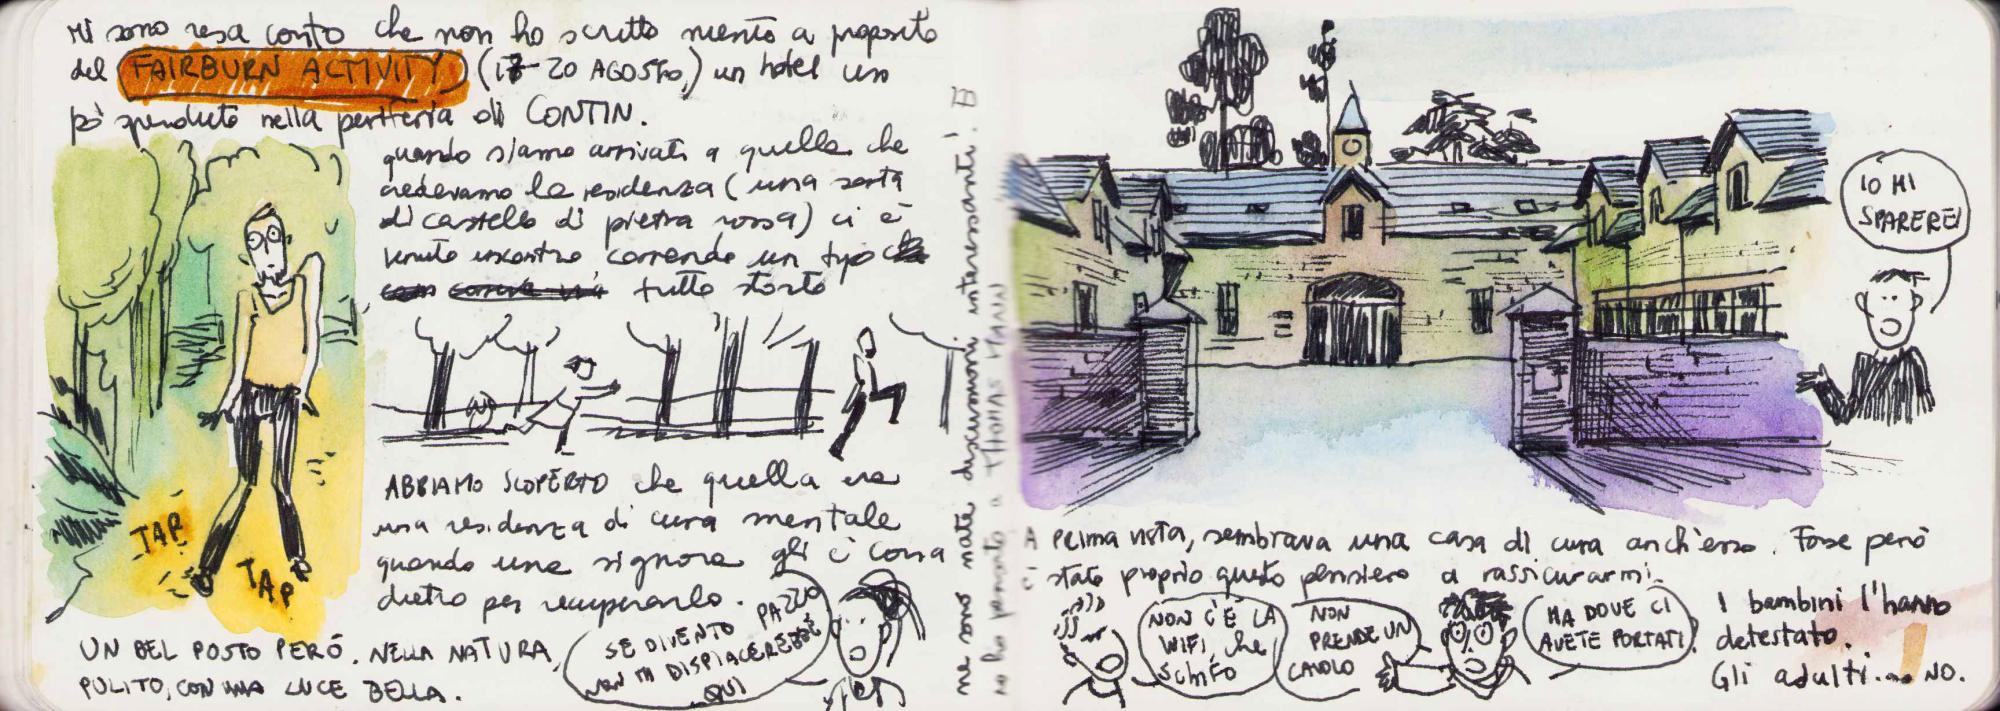 Mi sono resa conto che non ho scritto niente a proposito
del FAIRBURN ACTIVITY (17-20 AGOSTO) un hotel un
pò sperduto nella periferia di CONTIN.
quando siamo arrivati a quella che
credevamo la residenza (una sorta
di castello di pietra rossa) ci è
venuto incontro correndo un tipo
tutto storto
TAP
TAP
ABBIAMO SCOPERTO che quella era
una residenza di cura mentale
quando una signora gli è corsa
dietro per recuperarlo.
UN BEL POSTO PERÒ. NELLA NATURA,
PULITO, CON UNA LUCE BELLA.
SE DIVENTO PAZZO
NON MI DISPIACEREBBE
QUI
ne sono nate discussioni interessanti! E
ho pensato a THOMAS MANN
IO MI
SPAREREI
A PRIMA VISTA, sembrava una casa di cura anch'esso. Forse però
è stato proprio questo pensiero a rassicurarmi.
NON C'È LA
WIFI, che
SCHIFO
NON
PRENDE UN
CAVOLO
MA DOVE CI
AVETE PORTATI
I bambini l'hanno
detestato.
Gli adulti... NO.